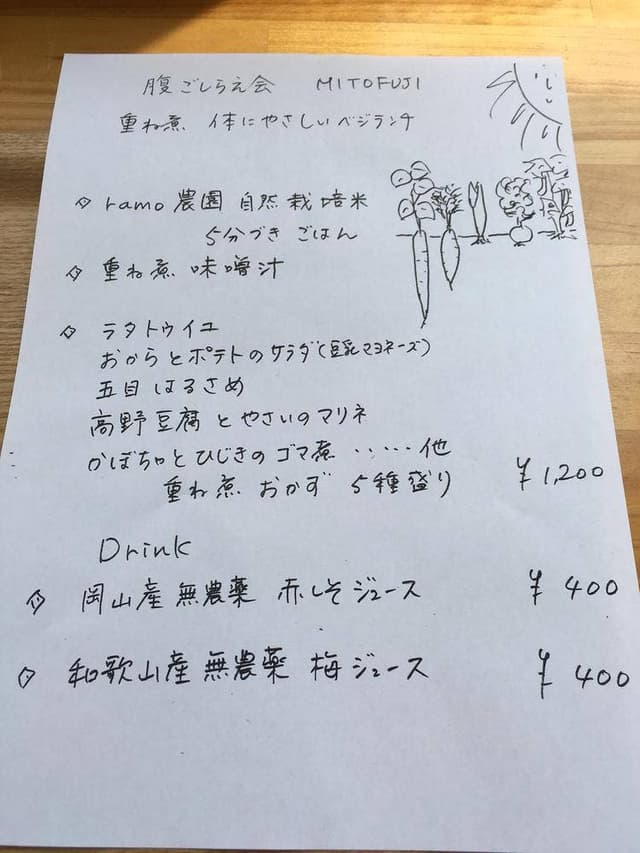 腹ごしらえ会 MITOFUJI
重ね煮 体にやさしいベジランチ
◇ ramo 農園 自然栽培米
5分づき ごはん
◇ 重ね煮 味噌汁
◇ ラタトゥイユ
おからとポテトのサラダ(豆乳マヨネーズ)
五目 はるさめ
高野豆腐 と やさいのマリネ
かぼちゃと ひじきの ゴマ煮 ‥‥‥他
重ね煮 おかず 5種盛り ¥1,200
Drink
◇ 岡山産 無農薬 赤しそ ジュース ¥400
◇ 和歌山産 無農薬 梅 ジュース ¥400